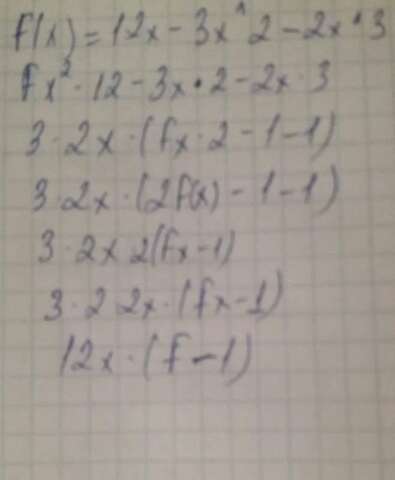 f(x)=12x-3x^2-2x^3
fx²·12-3x·2-2x·3
3·2x·(fx·2-1-1)
3·2x·(2f(x)-1-1)
3·2x 2(fx-1)
3·2 2x·(fx-1)
12x·(f-1)